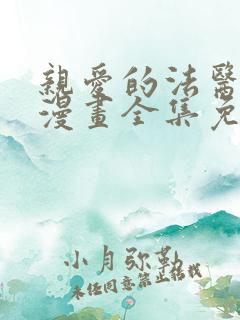 親愛的法醫
漫畫全集免
小月弥勒
未任同意禁止转载